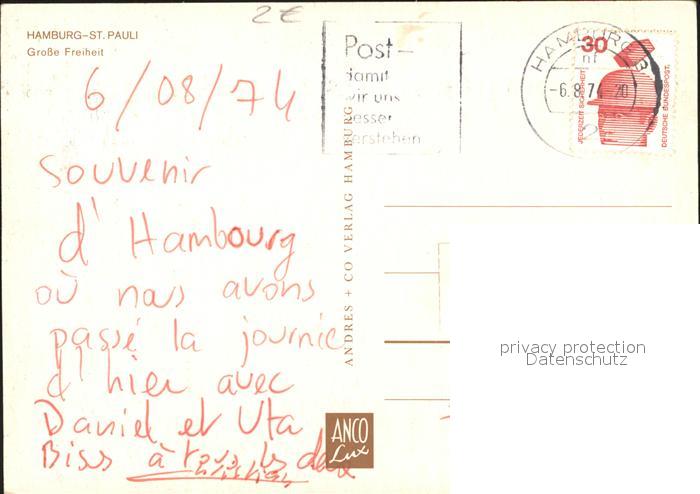 2€
HAMBURG-ST. PAULI
Große Freiheit
6/08/74
Souvenir
d'Hambourg
où nous avons
passé la journée
d'hier avec
Daniel et Uta
Biss à tous les deux
Post-
damit
wir uns
besser
verstehen
HAMBURG
-6.8.74-20
30
JEDERZEIT SICHERHEIT
DEUTSCHE BUNDESPOST
ANDRES + CO VERLAG HAMBURG
ANCO
Lux
privacy protection
Datenschutz